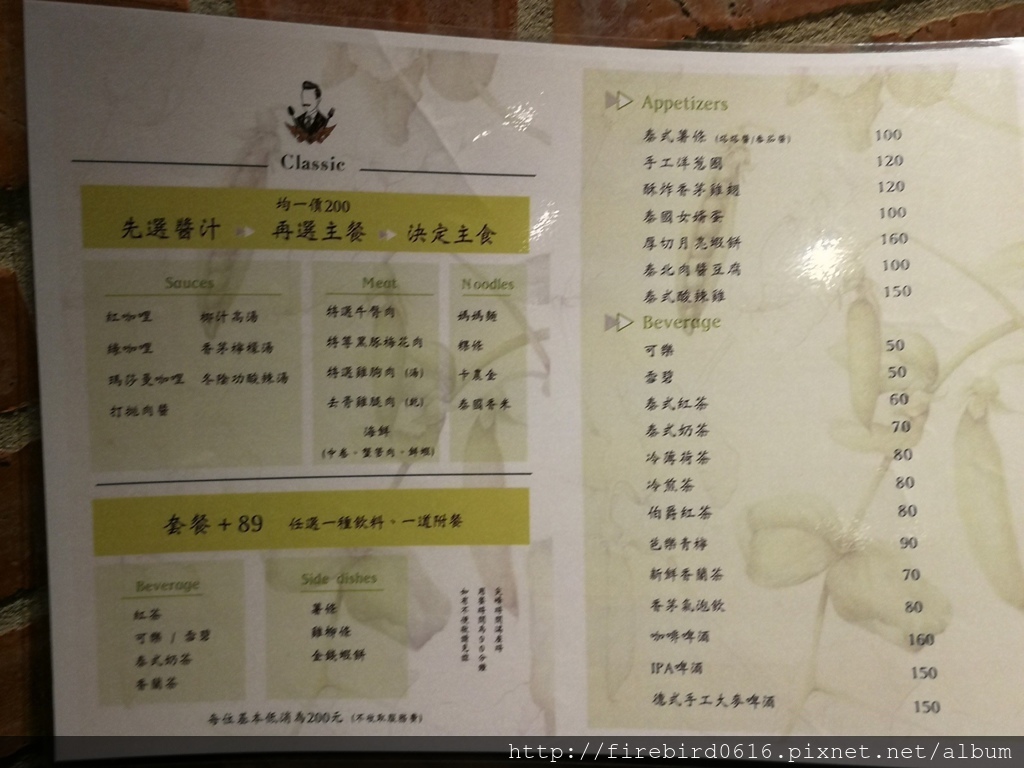 Classic
均一價200
先選醬汁 再選主餐 決定主食
Sauces
紅咖哩 椰汁高湯
綠咖哩 香茅檸檬湯
瑪莎曼咖哩 冬陰功酸辣湯
打拋肉醬
Meat
特選牛臀肉
特等黑豚梅花肉
特選雞胸肉 (湯)
去骨雞腿肉 (乾)
海鮮
(中卷、蟹管肉、鮮蝦)
Noodles
媽媽麵
粿條
卡農金
泰國香米
套餐+89 任選一種飲料、一道附餐
Beverage
紅茶
可樂 / 雪碧
泰式奶茶
香蘭茶
Side dishes
薯條
雞柳條
金錢蝦餅
尖峰時間滿座時
用餐時間為90分鐘
如有不便敬請見諒
每位基本低消為200元 (不收取服務費)
Appetizers
泰式薯條 100
手工洋蔥圈 120
酥炸香茅雞翅 120
泰國女婿蛋 100
厚切月亮蝦餅 160
泰北肉醬豆腐 100
泰式酸辣雞 150
Beverage
可樂 50
雪碧 50
泰式紅茶 60
泰式奶茶 70
冷薄荷茶 80
冷煎茶 80
伯爵紅茶 80
芭樂青檸 90
新鮮香蘭茶 70
香茅氣泡飲 80
咖啡啤酒 160
IPA啤酒 150
德式手工大麥啤酒 150
http://firebird0616.pixnet.net/album